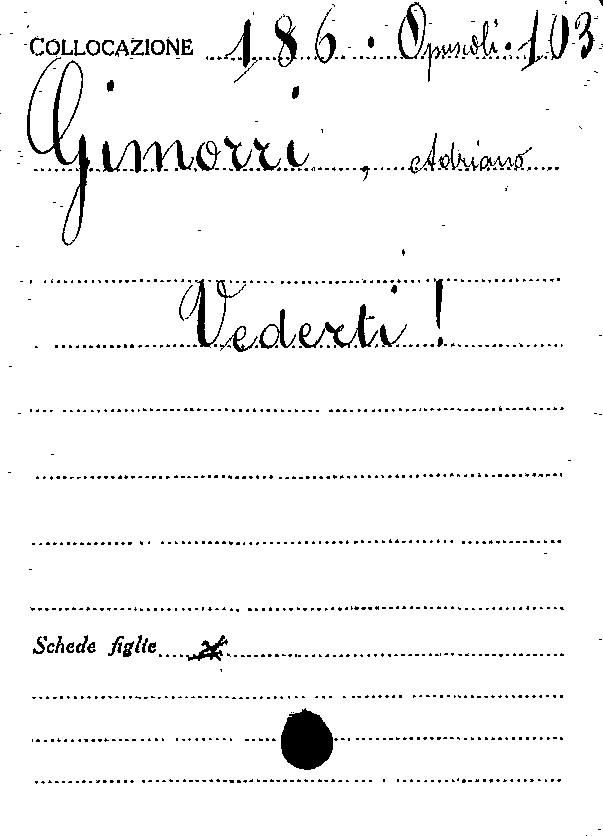 COLLOCAZIONE 186 · Opuscoli · 103
Gimorri, Adriano
Vederti!
Schede figlie